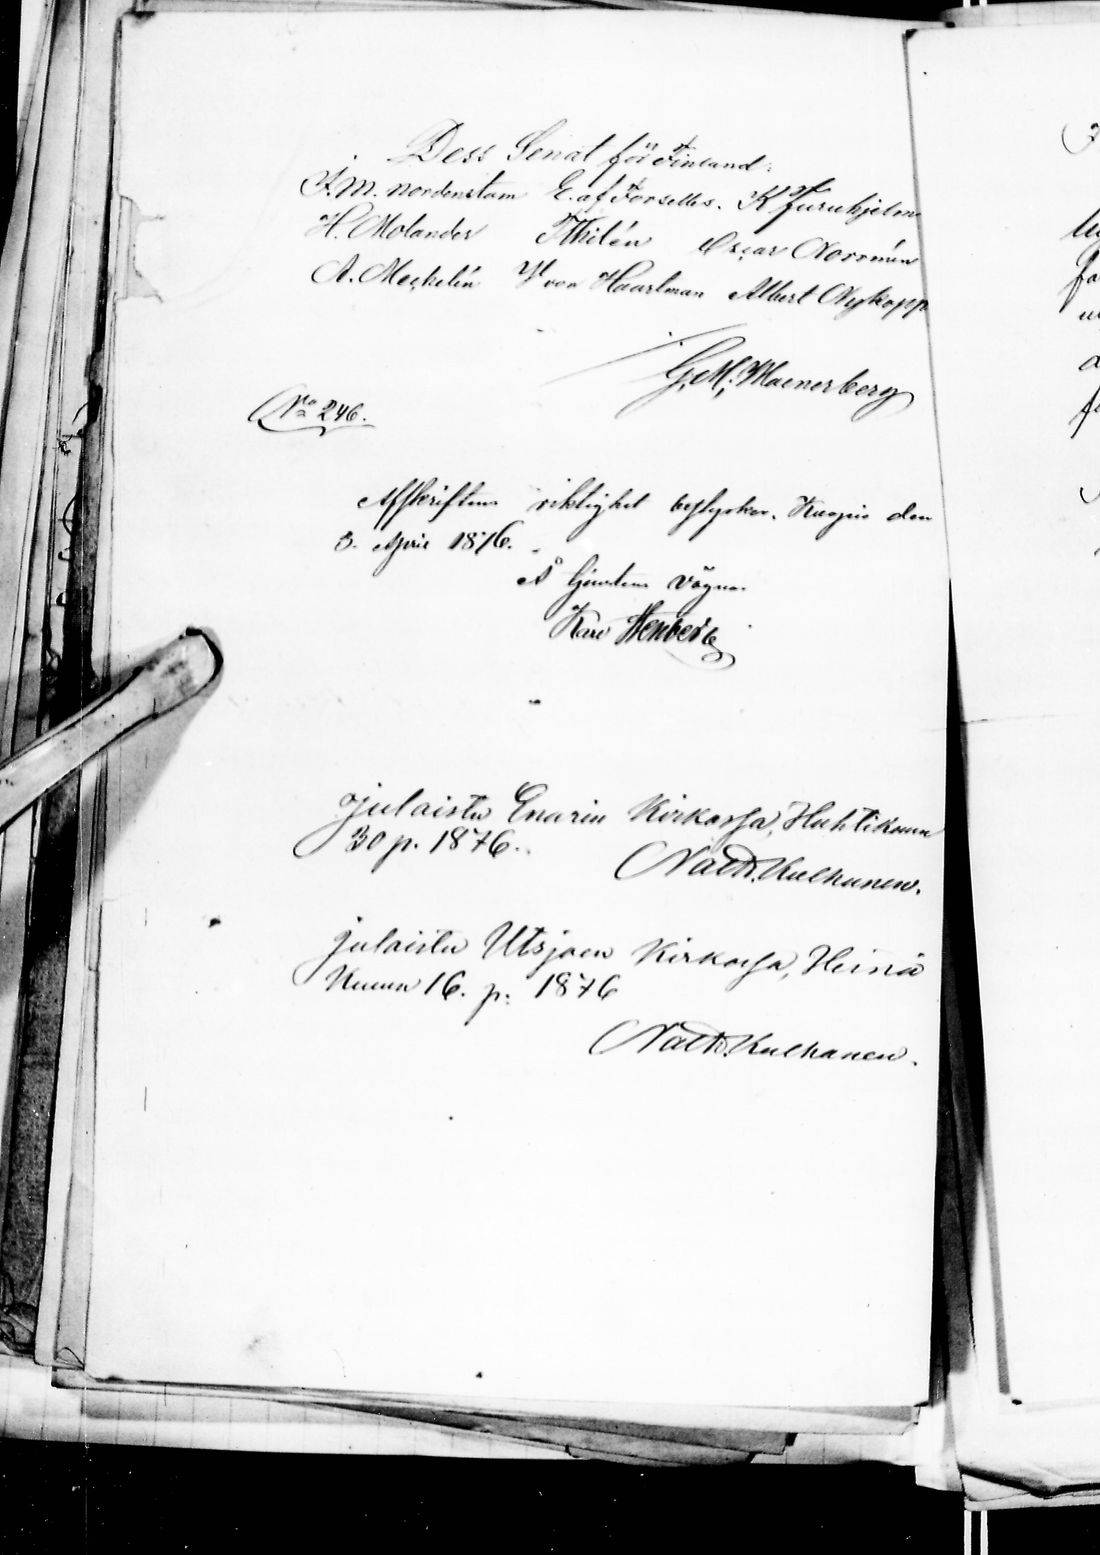 Dess Senat för Finland:
J. M. Nordenstam E. af Forselles. K Furuhjelm
H. Molander TThilén Oscar Norrmén
A. Mechelin V von Haartman Albert Nykopp
G. M. Waenerberg
No 246.
Afskriftens riktighet bestyrker. Kuopio den
3. April 1876.
Å Tjenstens vägnar
Karl
Julaistu Enarin Kirkossa, Huhtikuun
30 p. 1876.
Nath. Kulhanen.
julaistu Utsjoen Kirkossa, Heinä
Kuuun 16. p. 1876
Nath. Kulhanen.